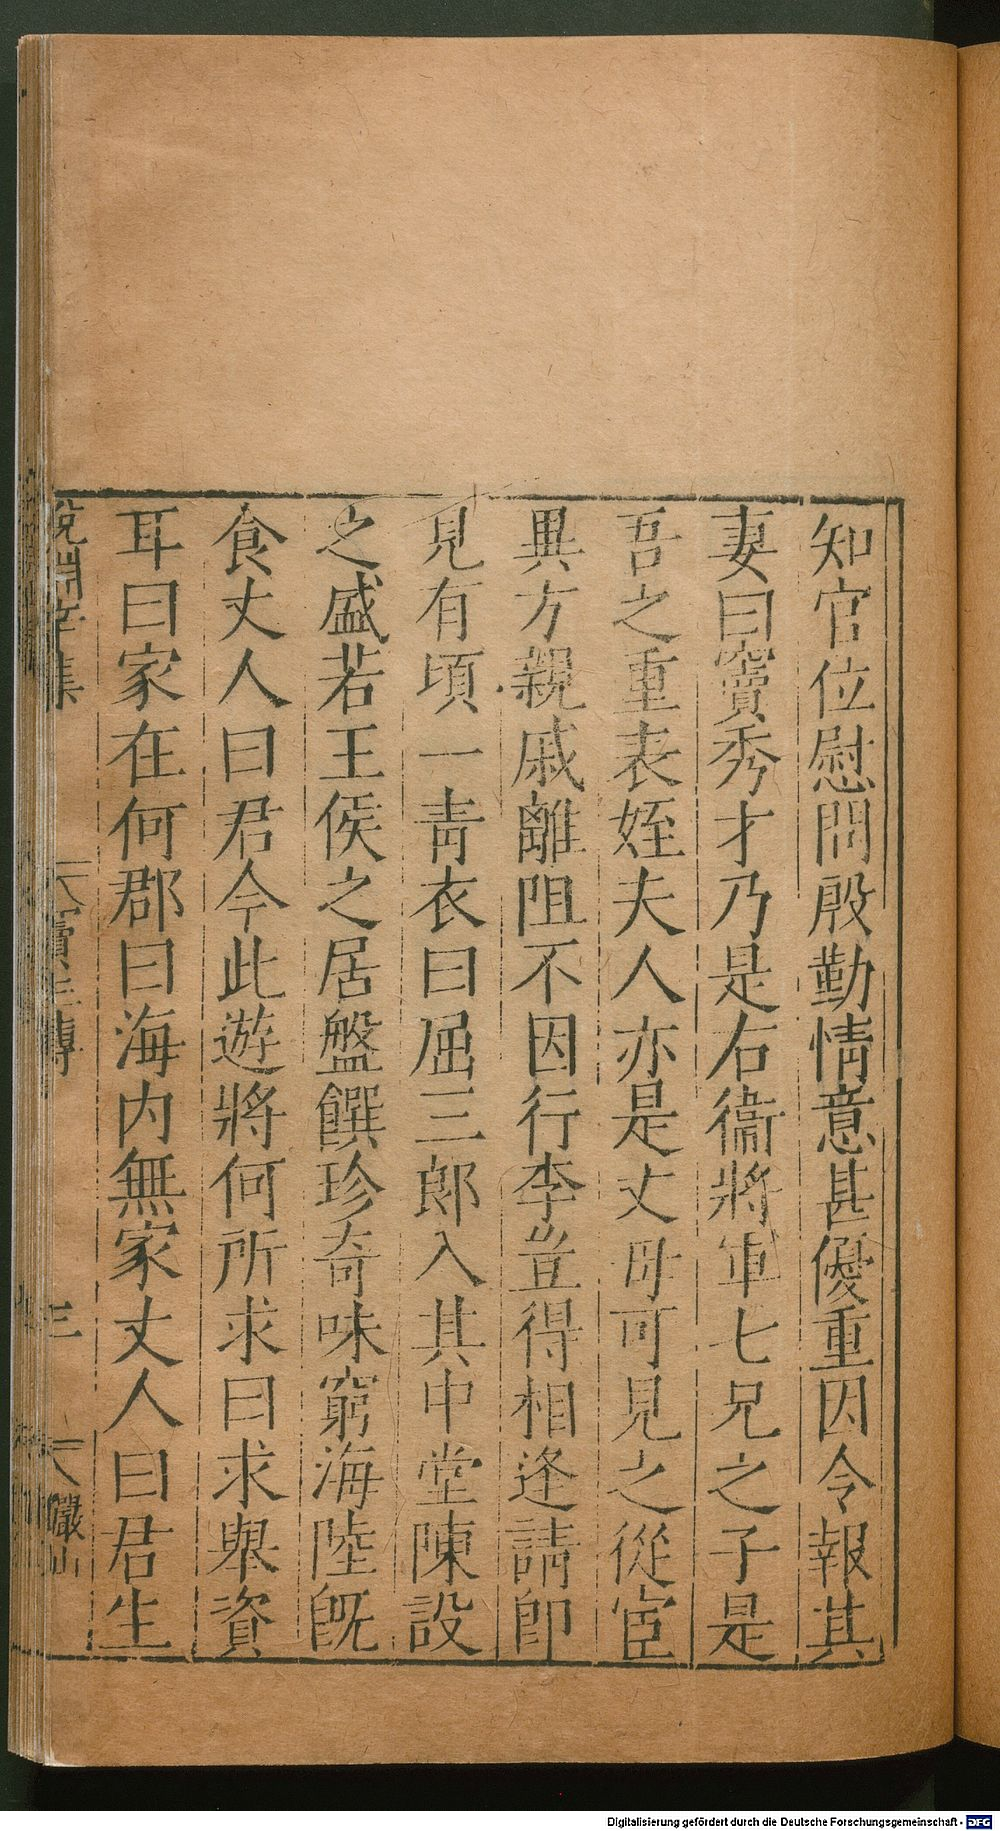 知官位慰問殷勤情意甚優重因令報其
妻曰竇秀才乃是右衞將軍七兄之子是
吾之重表姪夫人亦是丈母可見之從宦
異方親戚離阻不因行李豈得相逢請卽
見有頃一青衣曰屈三郎入其中堂陳設
之盛若王侯之居盤饌珍奇味窮海陸旣
食丈人曰君今此遊將何所求曰求舉資
耳曰家在何郡曰海内無家丈人曰君生
說淵辛集 竇玉傳 三 儼山
Digitalisierung gefördert durch die Deutsche Forschungsgemeinschaft - DFG